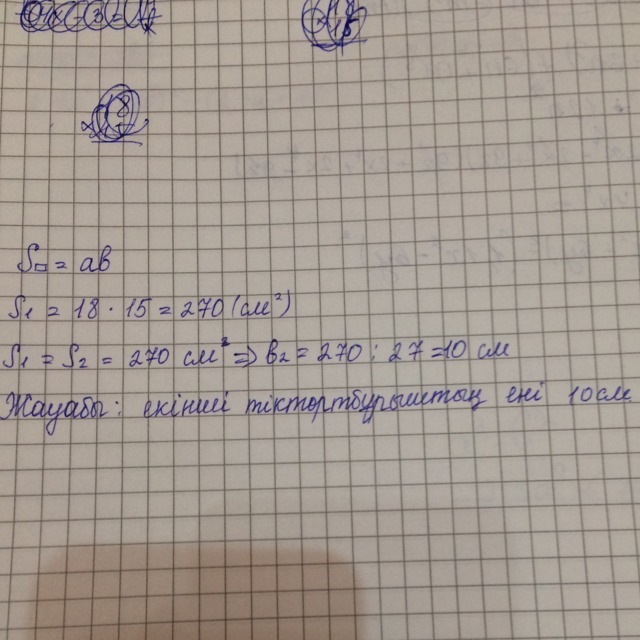 S▭ = ab
S₁ = 18 · 15 = 270 (см²)
S₁ = S₂ = 270 см² ⇒ b₂ = 270 : 27 = 10 см
Жауабы: екінші тіктөртбұрыштың ені 10 см